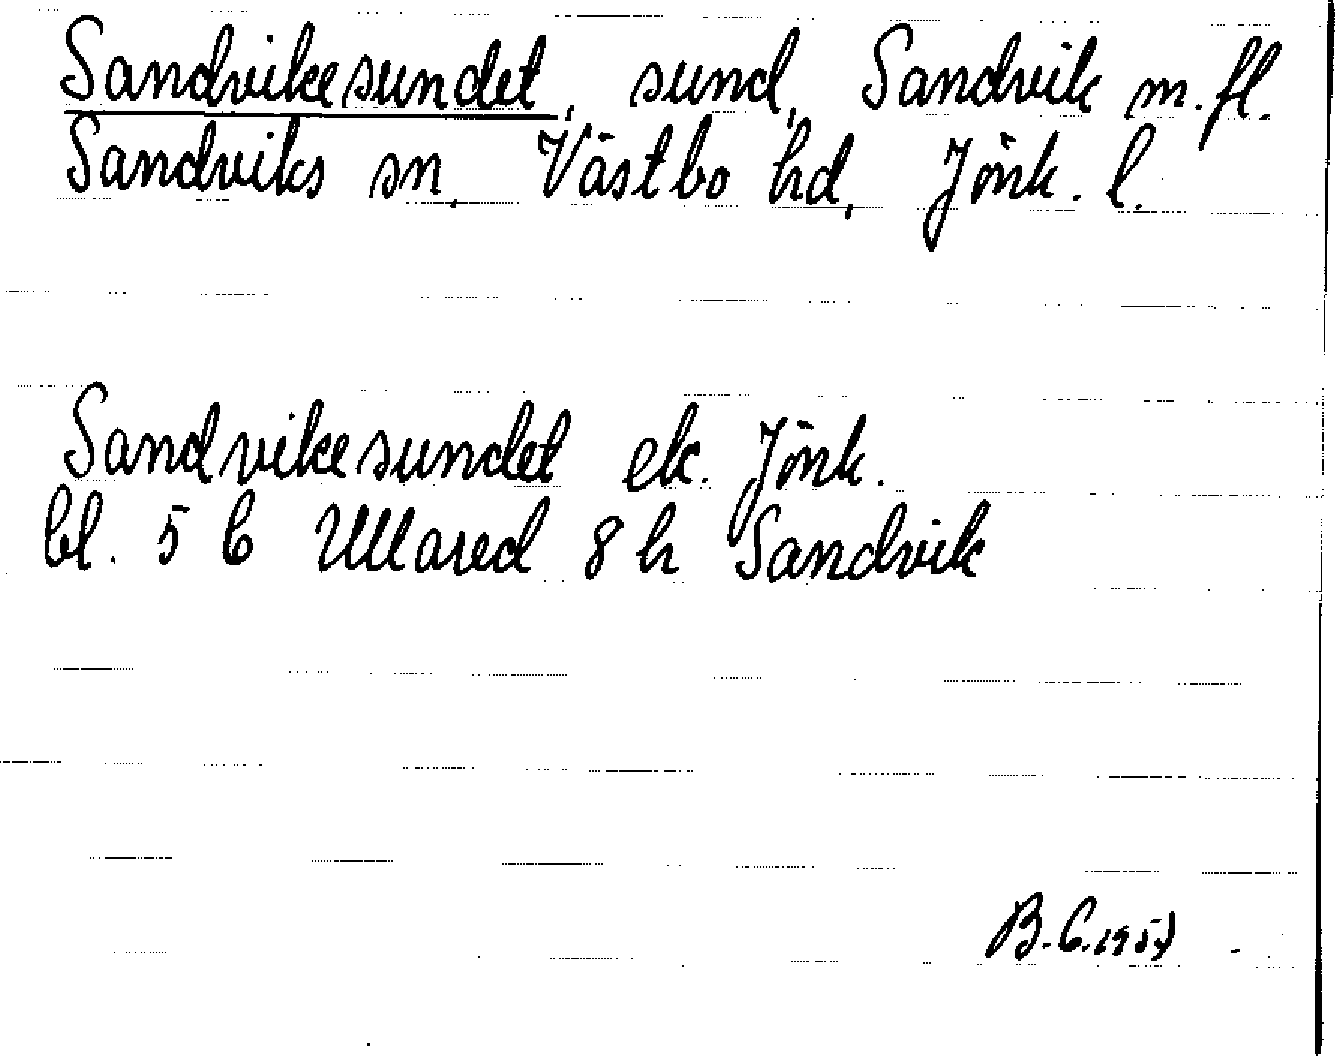 Sandvikesundet, sund, Sandvik m.fl.
Sandviks sn, Västbo hd, Jönk. l.
Sandvikesundet ek. Jönk.
bl. 5 C Ullared 8 h Sandvik